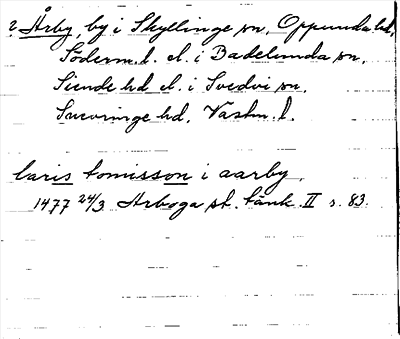 ? Årby, by i Skyllinge sn, Oppunda hd,
Söderm. l. el. i Badelunda sn,
Siende hd el. i Svedvi sn,
Snevringe hd, Vastm. l.
laris tomisson i aarby,
1477 24/3 Arboga st. tänk. II s. 83.